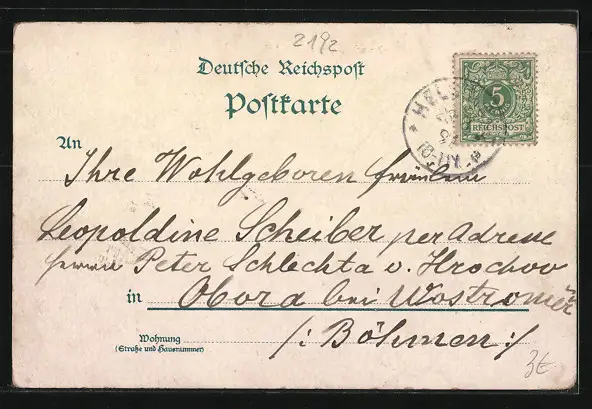 2192
Deutsche Reichspost
Postkarte
5
REICHSPOST
An
Ihre Wohlgeboren Fräulein
Leopoldine Scheiber per Adresse
Herrn Peter Schlechta v. Hrochov
in Obora bei Wostroměř
/: Böhmen :/
Wohnung
(Straße und Hausnummer)
3€